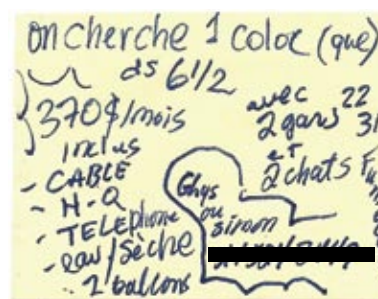 on cherche 1 coloc (que)
ds 6 1/2
370$/mois
inclus
- CABLE
- H-Q
- TELEphone
- lav/sèche
- 2 ballons
avec 22
2 gars 31
et
2 chats
Ghys
ou
simon